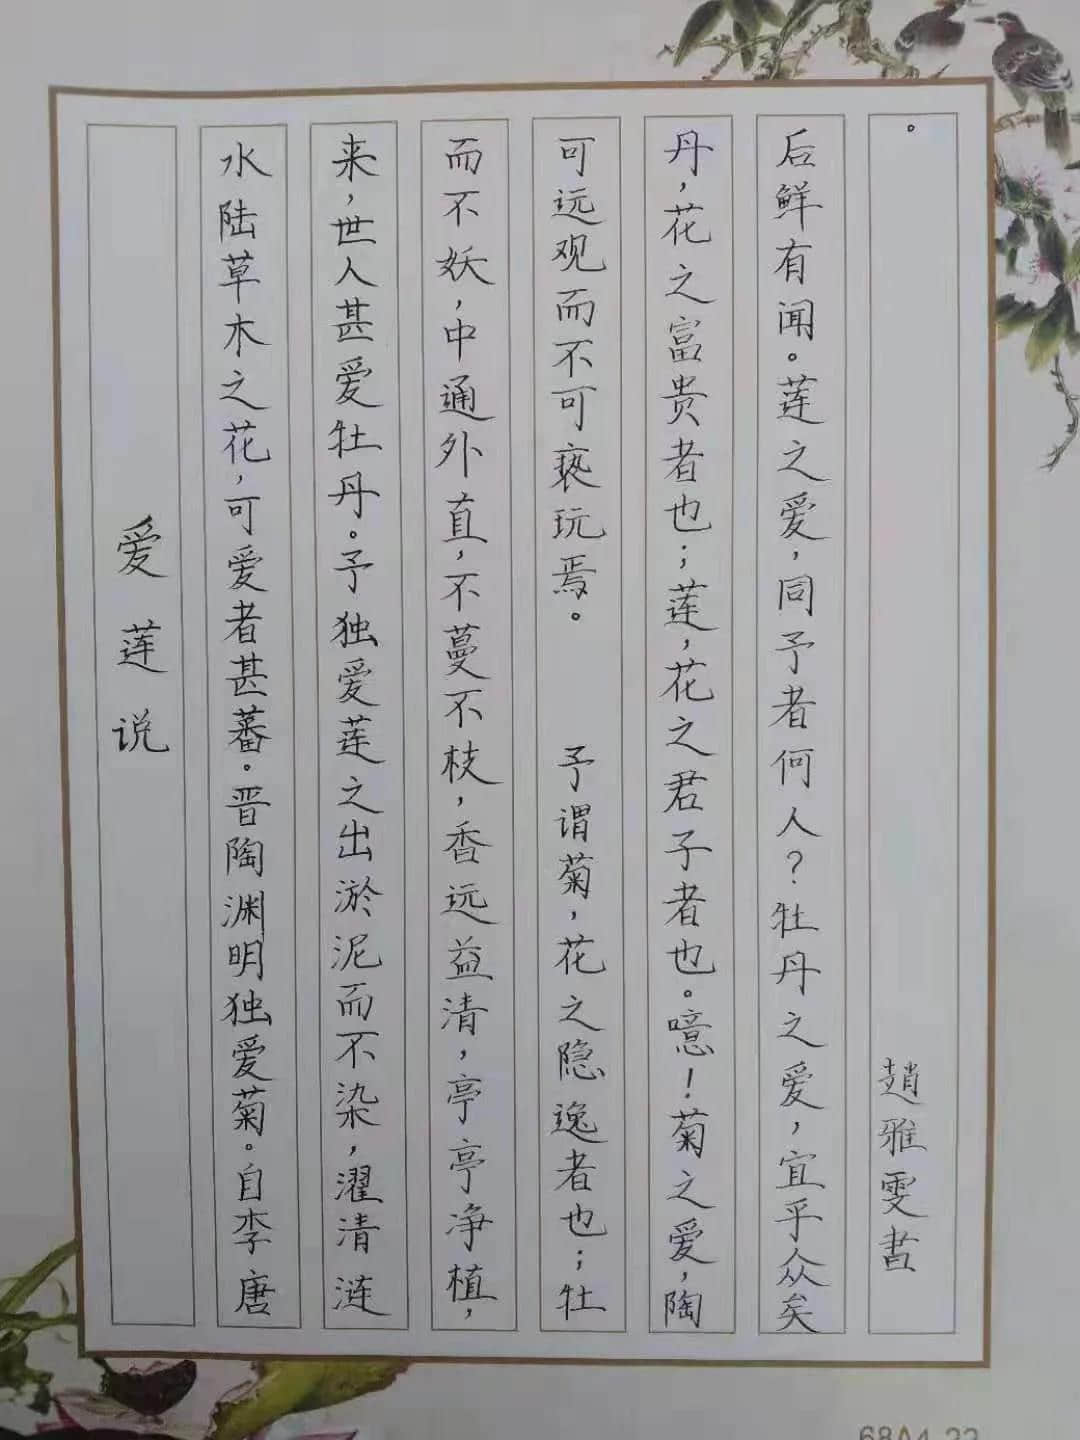 爱莲说
水陆草木之花，可爱者甚蕃。晋陶渊明独爱菊。自李唐
来，世人甚爱牡丹。予独爱莲之出淤泥而不染，濯清涟
而不妖，中通外直，不蔓不枝，香远益清，亭亭净植，
可远观而不可亵玩焉。 予谓菊，花之隐逸者也；牡
丹，花之富贵者也；莲，花之君子者也。噫！菊之爱，陶
后鲜有闻。莲之爱，同予者何人？牡丹之爱，宜乎众矣
。 趙雅雯書